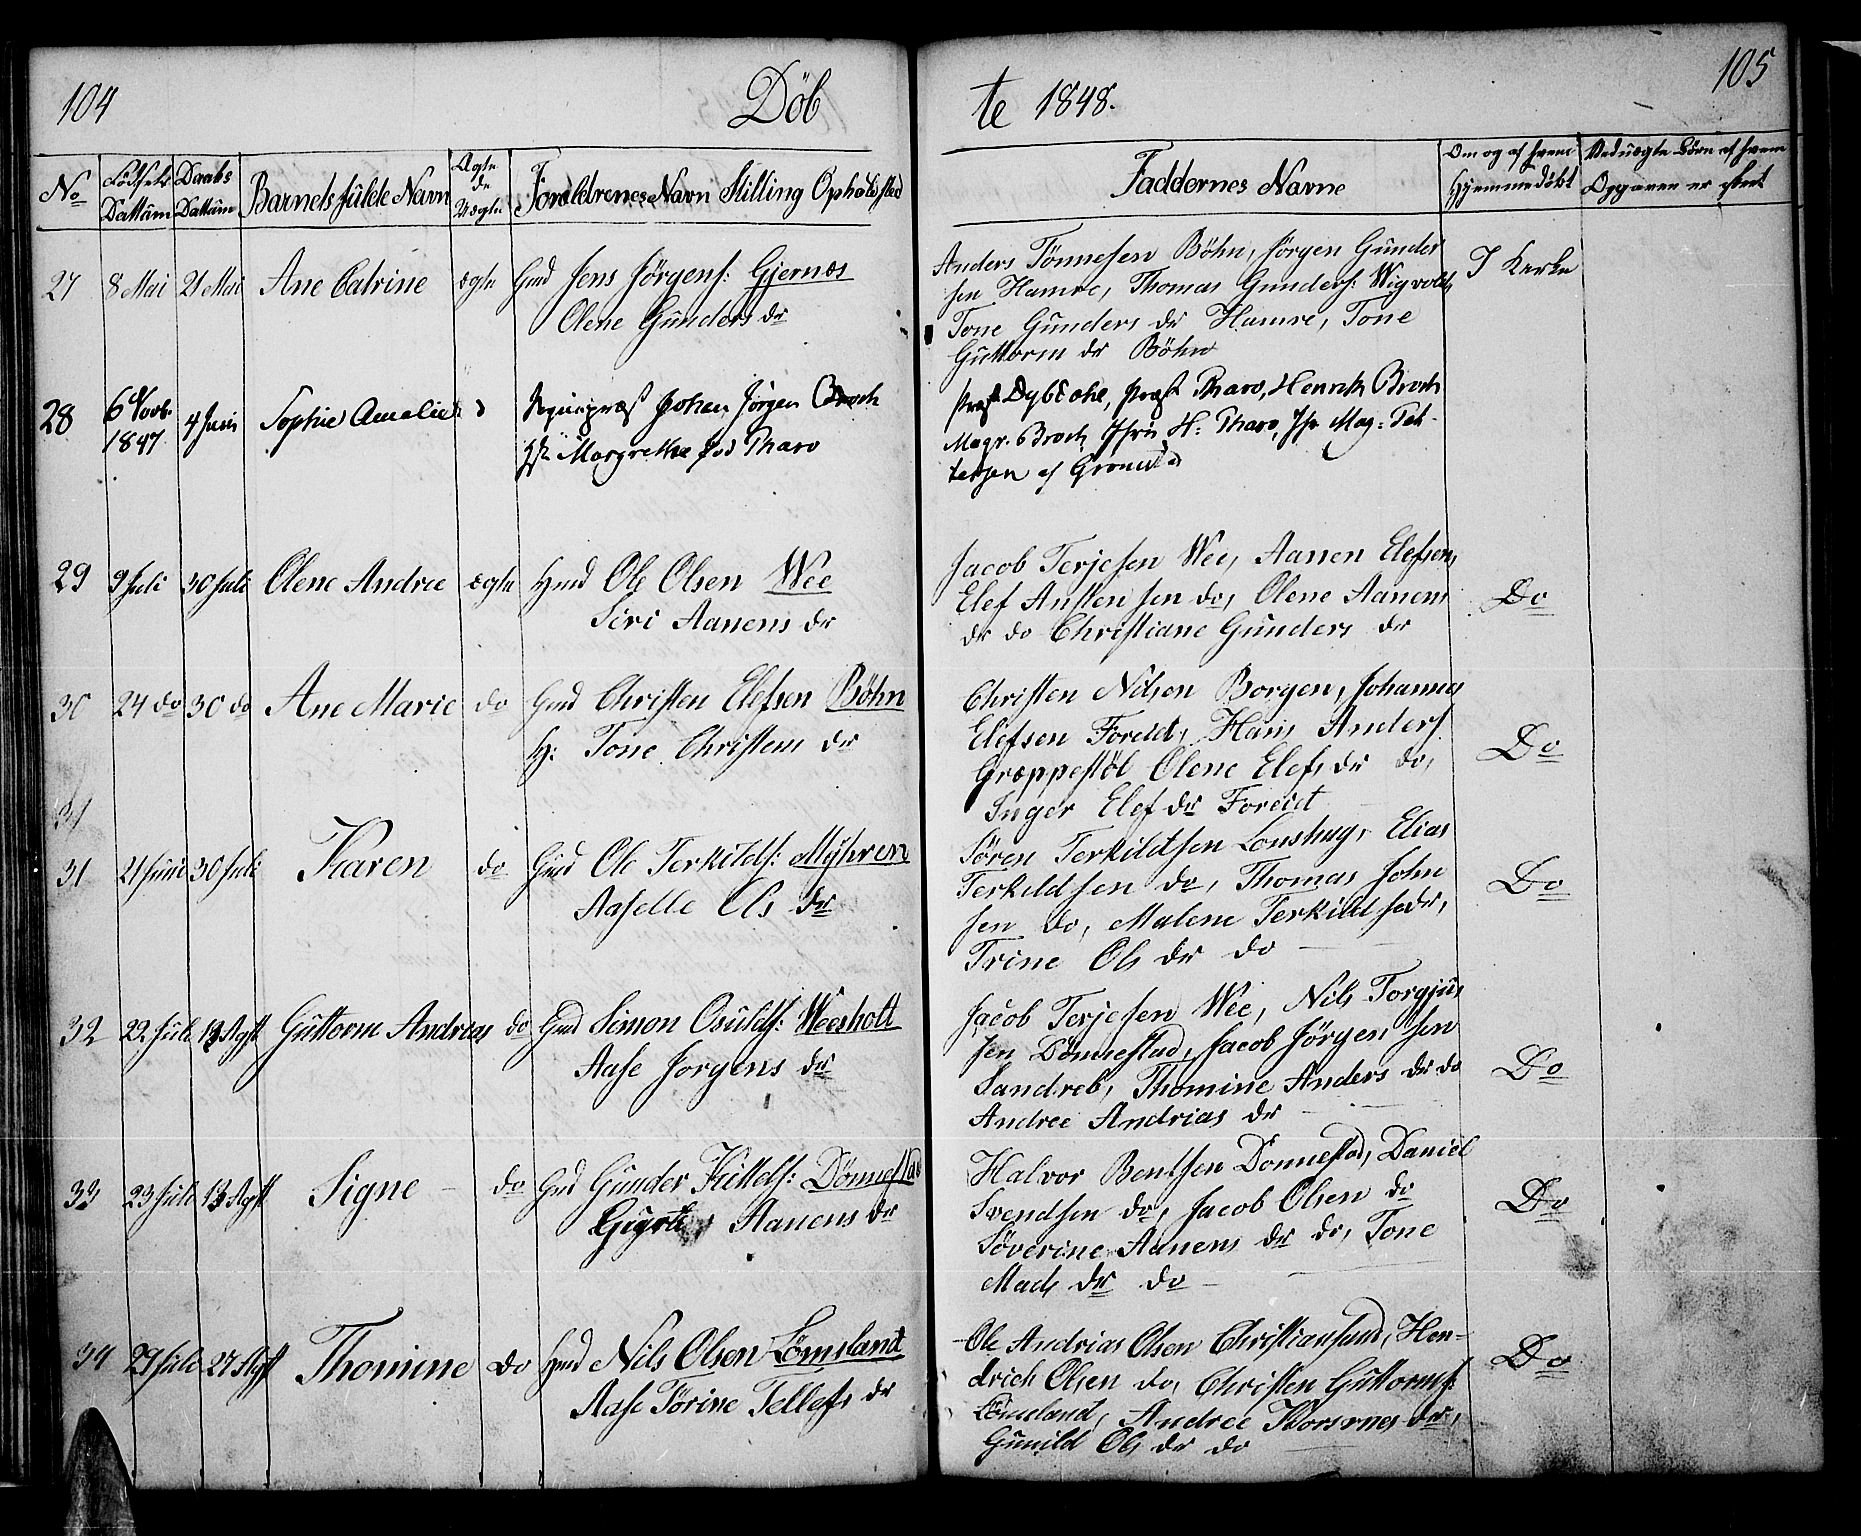 104
Döb
No
Födsels Dattum
Daabs Dattum
Barnets fulde Navn
Ægte de Uægte
Foreldrenes Navn Stilling Opholdsted
27 8 Mai 21 Mai Ane Catrine ægte Gmd Jens Jörgens: Gjernæs
Olene Gunders dr
28 6 Novb. 1847 4 Juni Sophie Amalie Sognepræst Johan Jörgen Broch
Margrethe fød Tharo
29 9 Juli 30 Juli Olene Andree ægte Hmd Ole Olsen Wee
Siri Aanens dr
30 24 do 30 do Ane Marie do Gmd Christen Elefsen Böhn
H: Tone Christens dr
31
31 21 Juni 30 Juli Karen do Gmd Ole Terkilds: Myhren
Aaselle Ols dr
32 22 Juli 13 Agst Guttorm Andreas do Gmd Simon Osulds: Weesholt
Aase Jorgens dr
33 23 Juli 13 Agst Signe do Gmd Gunder Kittels: Dönnestad
Aanens dr
34 29 Juli 27 Agst Thomine do Hmd Nils Olsen Lömsland
Aase Törine Tellefs dr
105
te 1848.
Faddernes Navne
Om og af hvem Hjemmedöbt
Ved uægte Börn af hvem Opgaven er skeet
Anders Tönnesen Böhn, Jörgen Gunder
sen Hamre, Thomas Gunders: Wigvold,
Tone Gunders dr Hamre, Tone
Guttorm dr Böhn
I Kerke
Præst Tharo, Henrik Broch
Magr. Broch, H: Tharo, Mag: Pet-
tersen af
Jacob Terjesen Wee, Aanen Elefsen,
Elef Anstensen do, Olene Aanens
dr do Christiane Gunders dr
Do
Christen Nilsen Borgen, Johannes
Elefsen Foreid, Hans Anders.
Græppestöl Olene Elefs dr do,
Inger Elef dr Foreid
Do
Sören Terkildsen Lonshug, Elias
Terkildsen do, Thomas John
sen do, Malene Terkildsedr,
Trine Ols dr do
Do
Jacob Terjesen Wee, Nils Torgjus
sen Dönnestad, Jacob Jörgensen
Sandreb, Thomine Anders dr do
Andree Andrias dr
Do
Halvor Bentsen Donnestad, Daniel
Svendsen do, Jacob Olsen do
Söverine Aanens dr do, Tone
Mads dr do
Do
Ole Andrias Olsen Christiansand, Hen-
drich Olsen do, Christen Guttorms:
Lömsland, Andree dr,
Gunild Ols dr do
Do